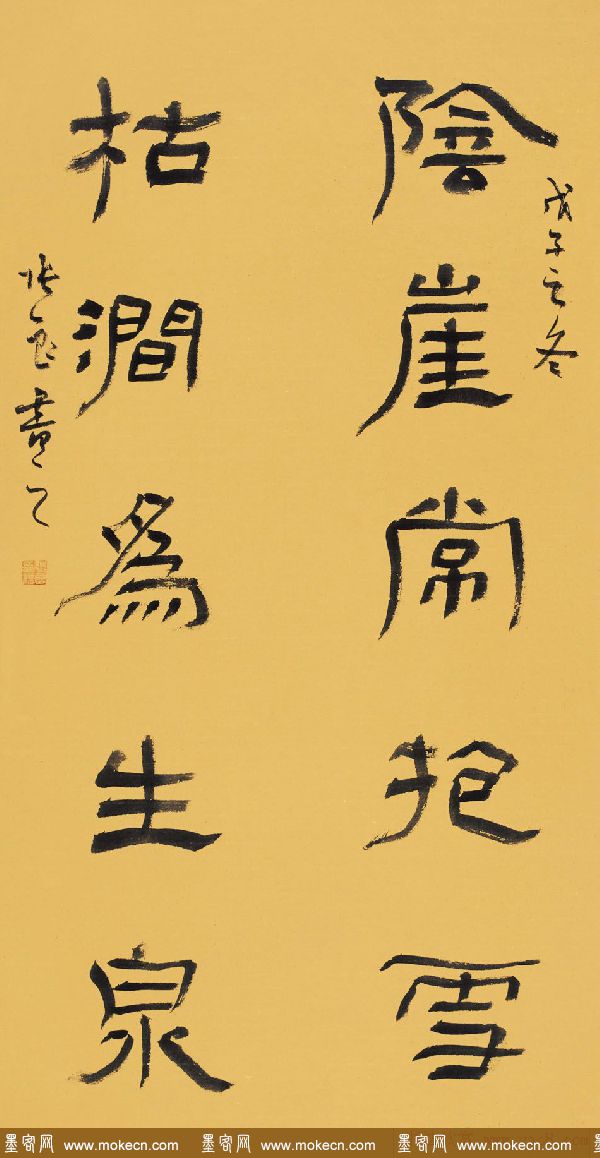 戊子冬
陰崖常抱雪
枯澗爲生泉
張書之
墨客网 www.mokecn.com 墨客网 www.mokecn.com 墨客网 www.mokecn.com